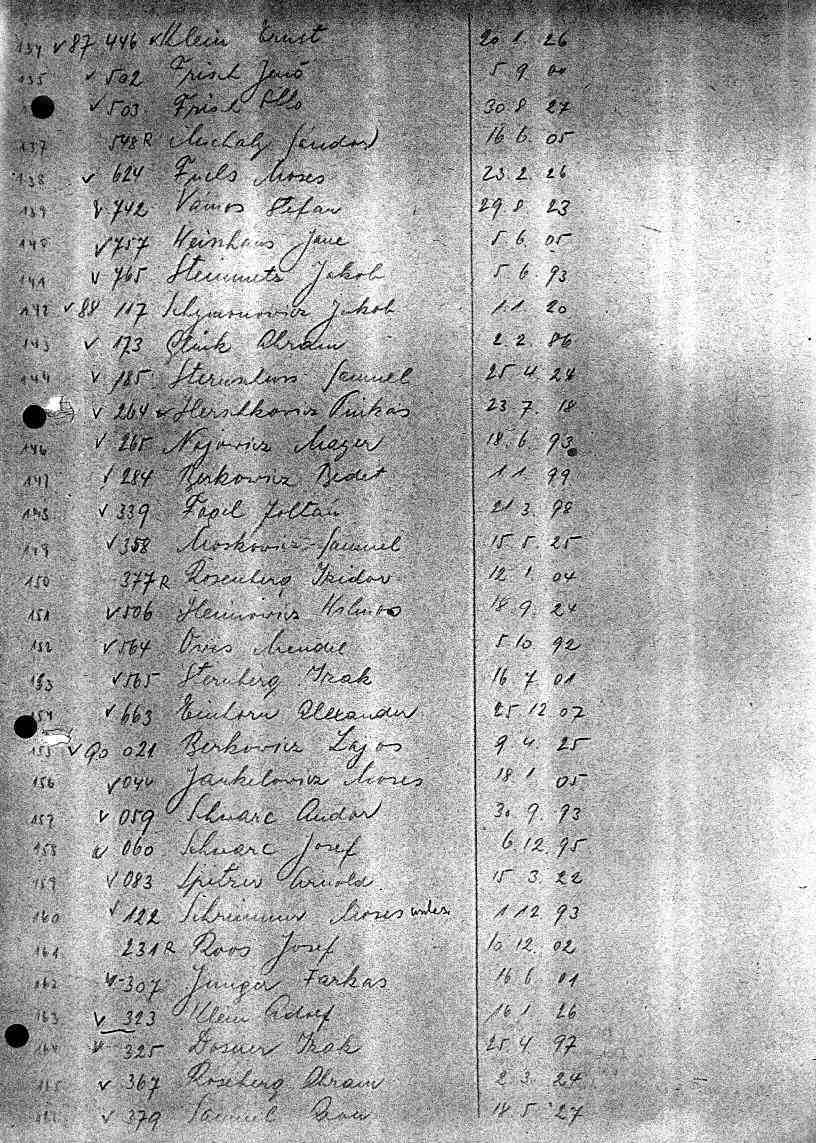 134 v 87 446 v Klein Ernst 20 1. 26
135 v 502 Frisch Jenö 5 9. 00
v 503 Frisch Otto 30 8 27
137 548 R Michaly Sándor 16 6. 05
138 v 624 Fuchs Moses 23. 2. 26
139 v 742 Vámos Stefan 29. 8. 23
140 v 757 Weinhaus 5. 6. 05
141 v 765 Steinmetz Jakob 5 6. 93
142 v 88 117 Schymonowicz Jakob 1 1. 20
143 v 173 Abram 2. 2. 86
144 v 185 Samuel 25 4. 24
v 264 v Herschkovicz Farkas 23. 7. 18
146 v 265 Najovicz Mayer 18. 6 93
147 v 284 Berkovicz 1 1 99
148 v 339 Fogel Zoltan 21 3. 98
149 v 358 Moskovicz Samuel 15. 5. 25
150 377 R Rosenberg Izidor 12 1. 04
151 v 506 18 9. 24
152 v 564 Mendel 5 10 92
153 v 565 Sternberg Izak 16 7 01
154 v 663 Einhorn Alexander 25 12 07
155 v 90 021 Berkovicz Lajos 9 4. 25
156 v 040 Jankelovicz Moses 18. 1. 05
157 v 059 Schwarc Andor 30 9. 93
158 v 060 Schwarc Josef 6. 12. 95
159 v 083 Spitzer Arnold 15 3. 22
160 v 122 Moses 1 12 93
161 231 R Roos Josef 10 12. 02
162 v 307 Junger Farkas 16 6 01
163 v 323 Klein Adolf 16 1. 26
164 v 325 Izak 25. 4. 97
165 v 367 Roseberg Abram 2. 3. 24
166 v 379 Samuel 18. 5 27